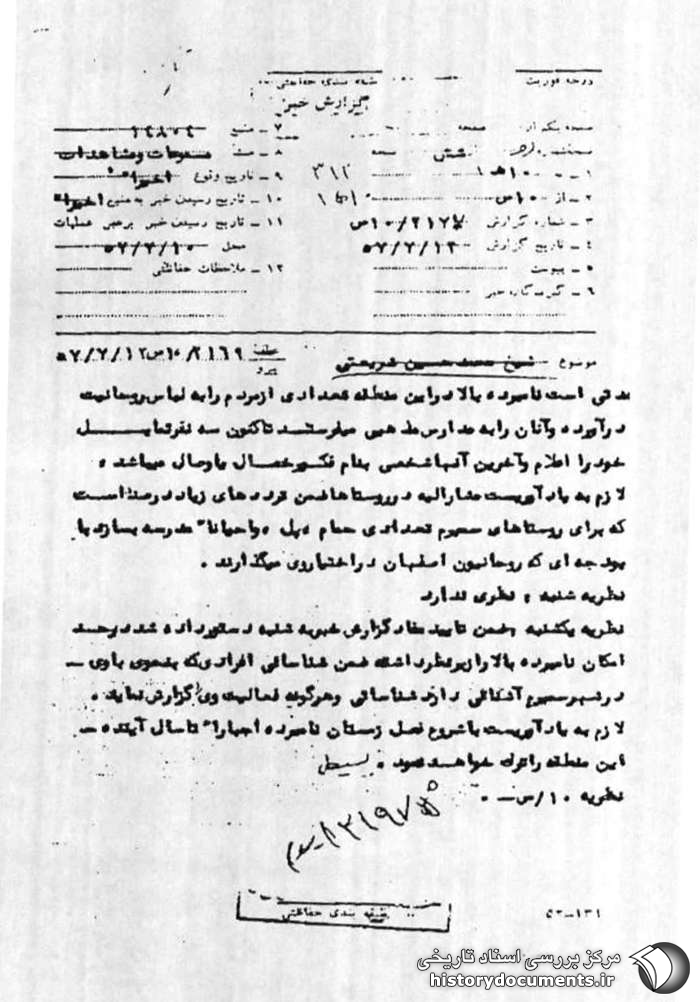 درجه فوریت
طبقه بندی حفاظتی
گزارش خبر
صفحه یکم از صفحه
۱ - به ۱۰ هـ ۱
۲ - از ۱۰ س
۳ - شماره گزارش
۴ - تاریخ گزارش ۵۷/۷/۱۲
۵ - پیوست
۶ - گیرندگان خبر
۳۱۲
۷ - منبع
۸ - منشاء مسموعات و مشاهدات
۹ - تاریخ وقوع اخیرا"
۱۰ - تاریخ رسیدن خبر به منبع اخیرا"
۱۱ - تاریخ رسیدن خبر به رهبر عملیات
محل ۵۷/۷/۱۰
۱۲ - ملاحظات حفاظتی
موضوع شیخ محمد حسین شریعتی
عطف پیرو ۲۱۶۹/۱۰س ۵۷/۷/۱۲
مدتی است نامبرده بالا در این منطقه تعدادی از مردم را به لباس روحانیت
درآورده و آنان را به مدارس مذهبی میفرستد تاکنون سه نفر تمایل
خود را اعلام و آخرین آنها شخصی بنام میباشد .
لازم به یادآوریست مشارالیه در روستاها ضمن ترددهای زیاد درصدد است
که برای روستاهای سمیرم تعدادی حمام ، پل و احیانا" مدرسه بسازد با
بودجه ای که روحانیون اصفهان در اختیار وی میگذارند .
نظریه شنبه ، نظری ندارد
نظریه یکشنبه ، ضمن تایید مفاد گزارش خبر به شنبه دستور داده شد در حد
امکان نامبرده بالا را زیر نظر داشته ضمن شناسائی افرادی که بنحوی با وی -
در سمیرم آشنائی دارند شناسائی و هرگونه فعالیت وی گزارش نماید .
لازم به یادآوریست با شروع فصل زمستان نامبرده اجبارا" تا سال آینده -
این منطقه را ترک خواهد نمود .
نظریه ۱۰/س - .
طبقه بندی حفاظتی
۵۲-۱۳۱
مرکز بررسی اسناد تاریخی
historydocuments.ir